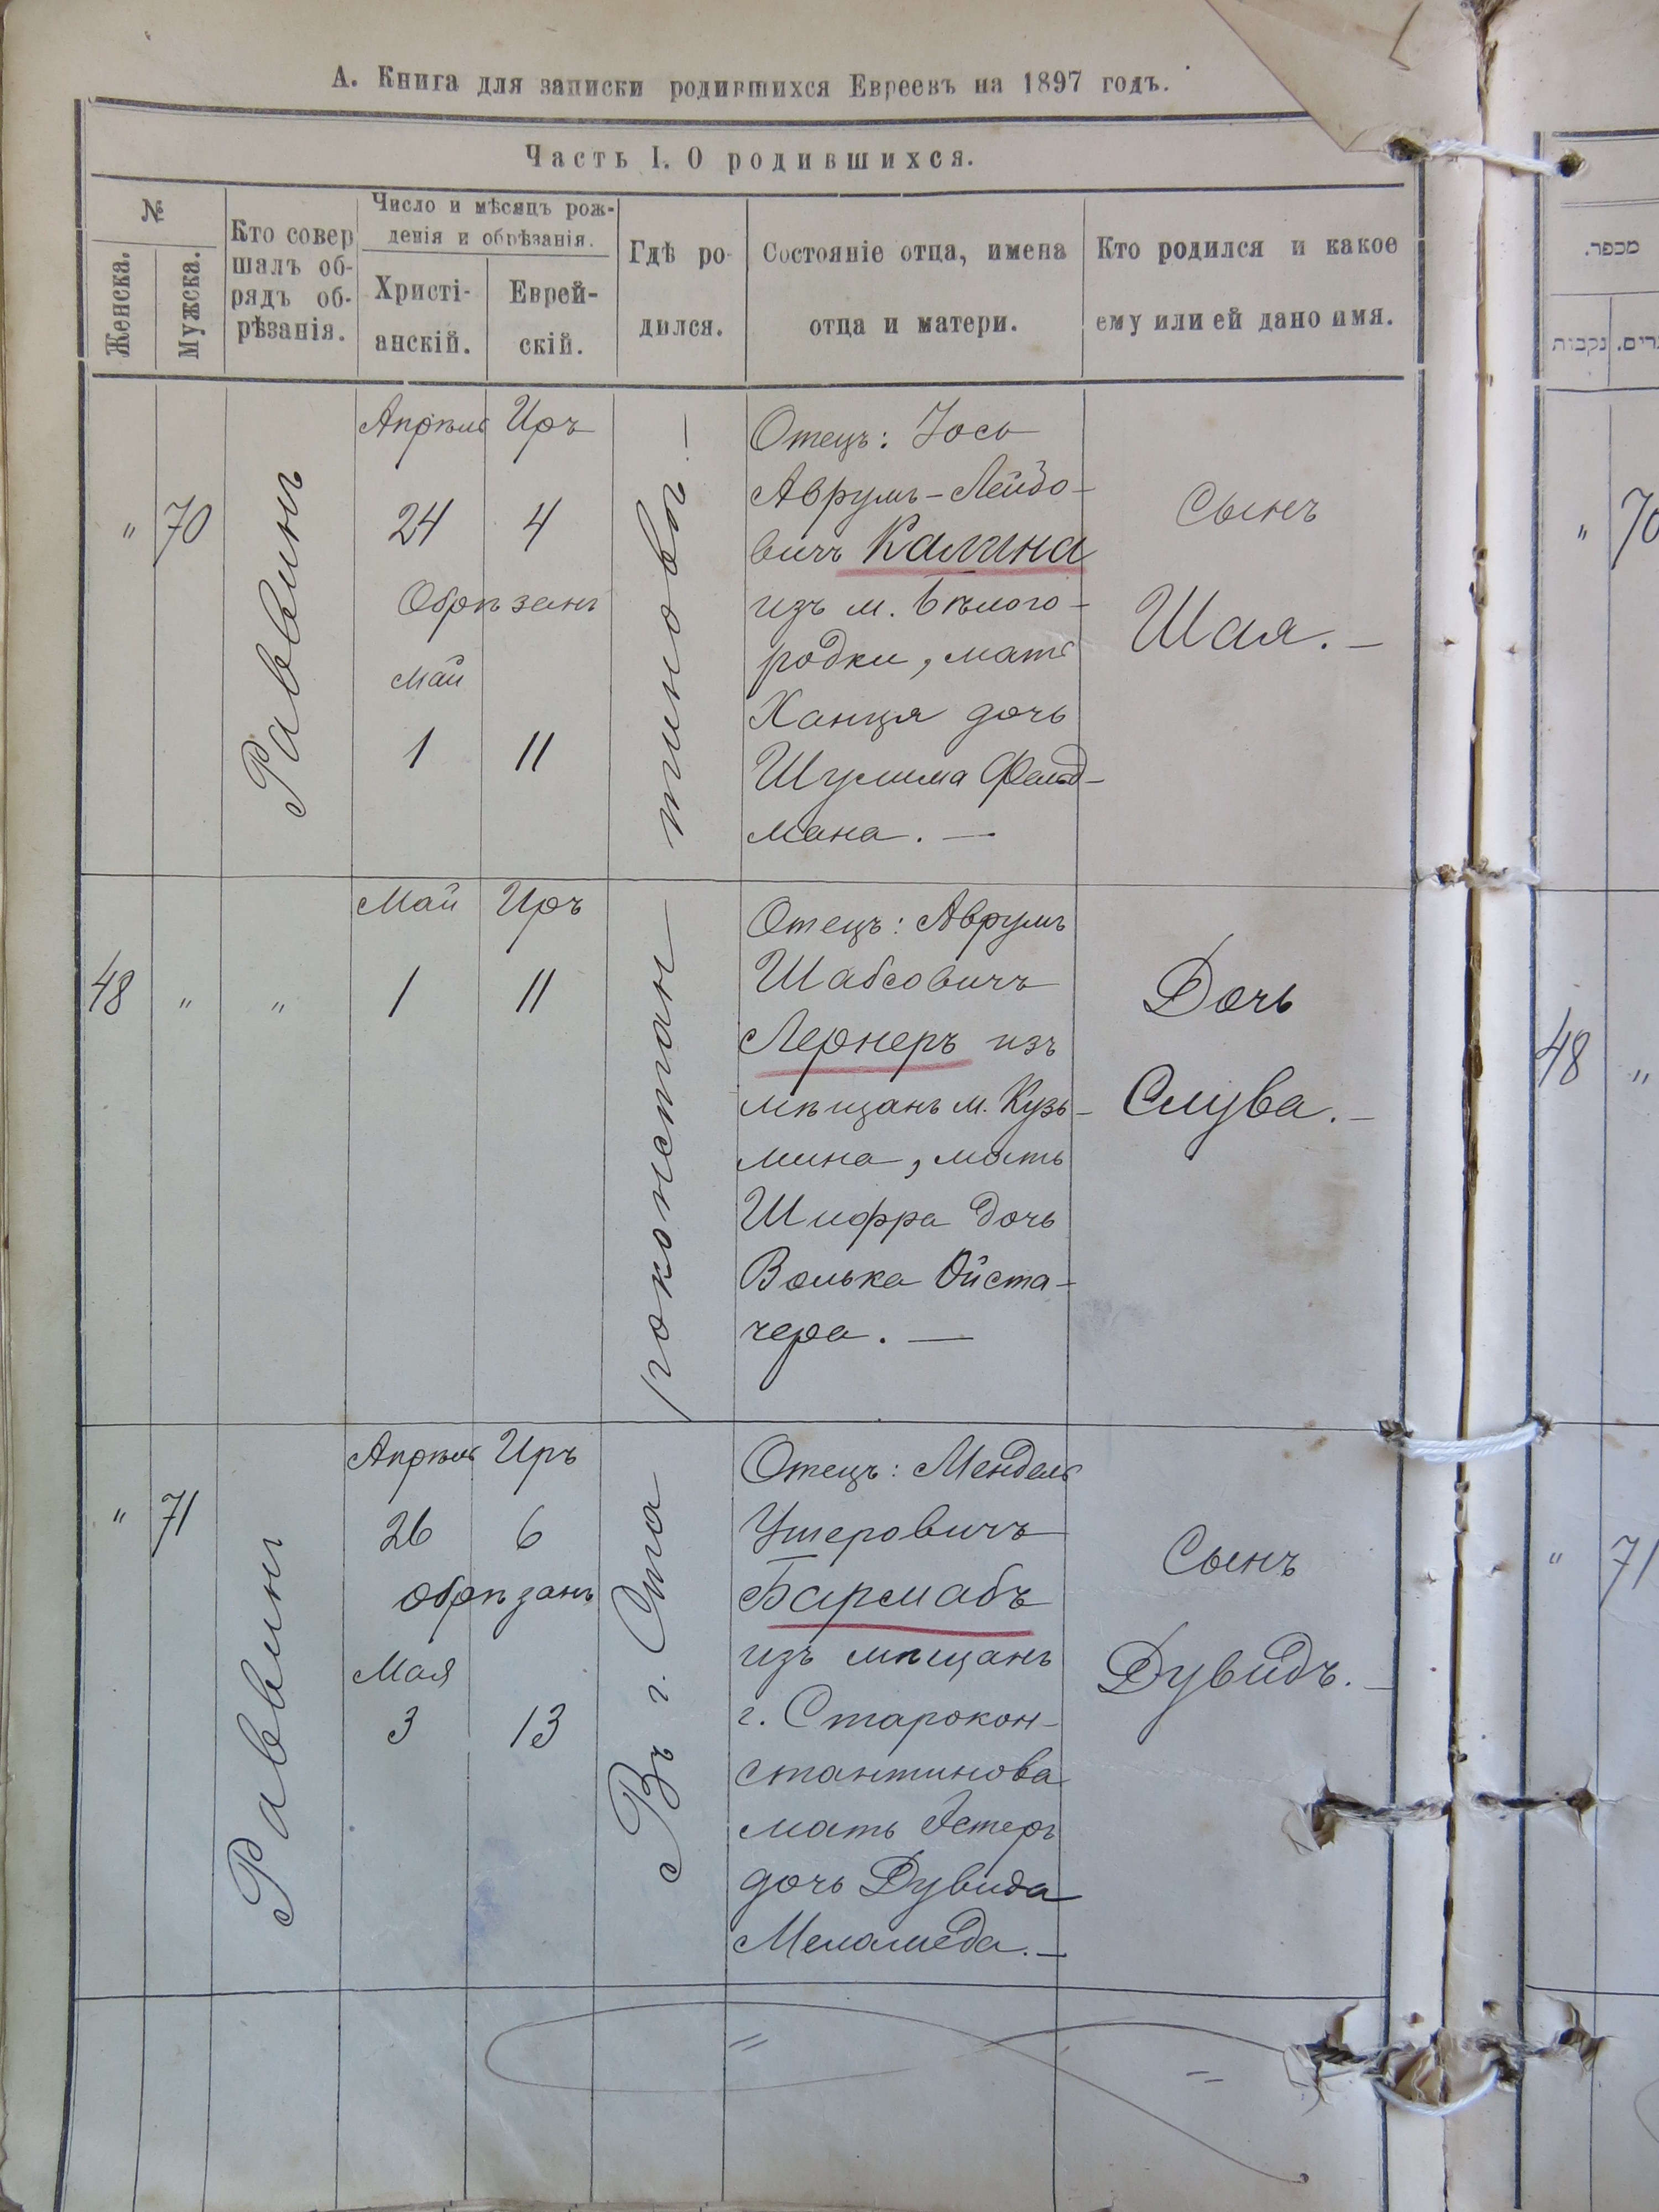 А. Книга для записки родившихся Евреевъ на 1897 годъ.
Часть I. О родившихся.
№
Женска.
Мужска.
Кто совер
шалъ об-
рядъ об-
рѣзанія.
Число и мѣсяцъ рож-
денія и обрѣзанія.
Христі-
анскій.
Еврей-
скій.
Гдѣ ро-
дился.
Состояніе отца, имена
отца и матери.
Кто родился и какое
ему или ей дано имя.
מכפר.
נקבות
" 70
Раввинъ
Апрѣль Иръ
24 4
Обрѣзанъ
Май
1 11
Отецъ: Іось
Аврумъ-Лейзо-
вичъ Калина
изъ м. Бѣлого-
родки, мать
Ханця дочь
Шулима Фельд-
мана. —
Сынъ
Шая. —
" 70
48 " "
Май Иръ
1 11
Отецъ: Аврумъ
Шабсовичъ
Лернеръ изъ
мѣщанъ м. Кузь-
мина, мать
Шифра дочь
Волька Ойста-
чера. —
Дочь
Слува. —
48 "
" 71
Раввинъ
Апрѣль Иръ
26 6
Обрѣзанъ
Мая
3 13
Въ г. Ста
роконстан—
тиновѣ. —
Отецъ: Мендель
Ушеровичъ
Бармабъ
изъ мѣщанъ
г. Старокон-
стантинова
мать Эстеръ
дочь Дувида
Меламеда. —
Сынъ
Дувидъ. —
" 71